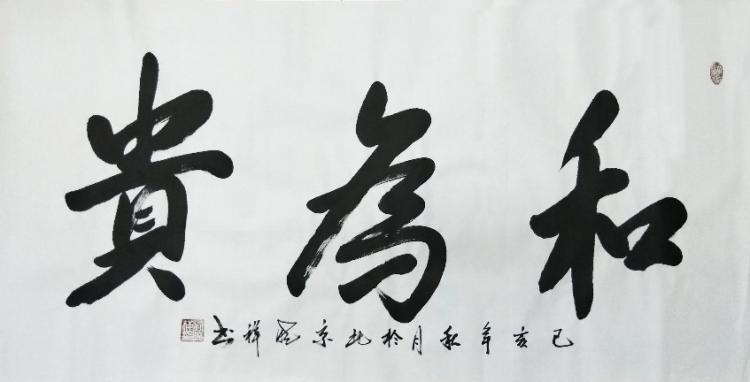 和為貴
己亥年秋月於北京 祥书